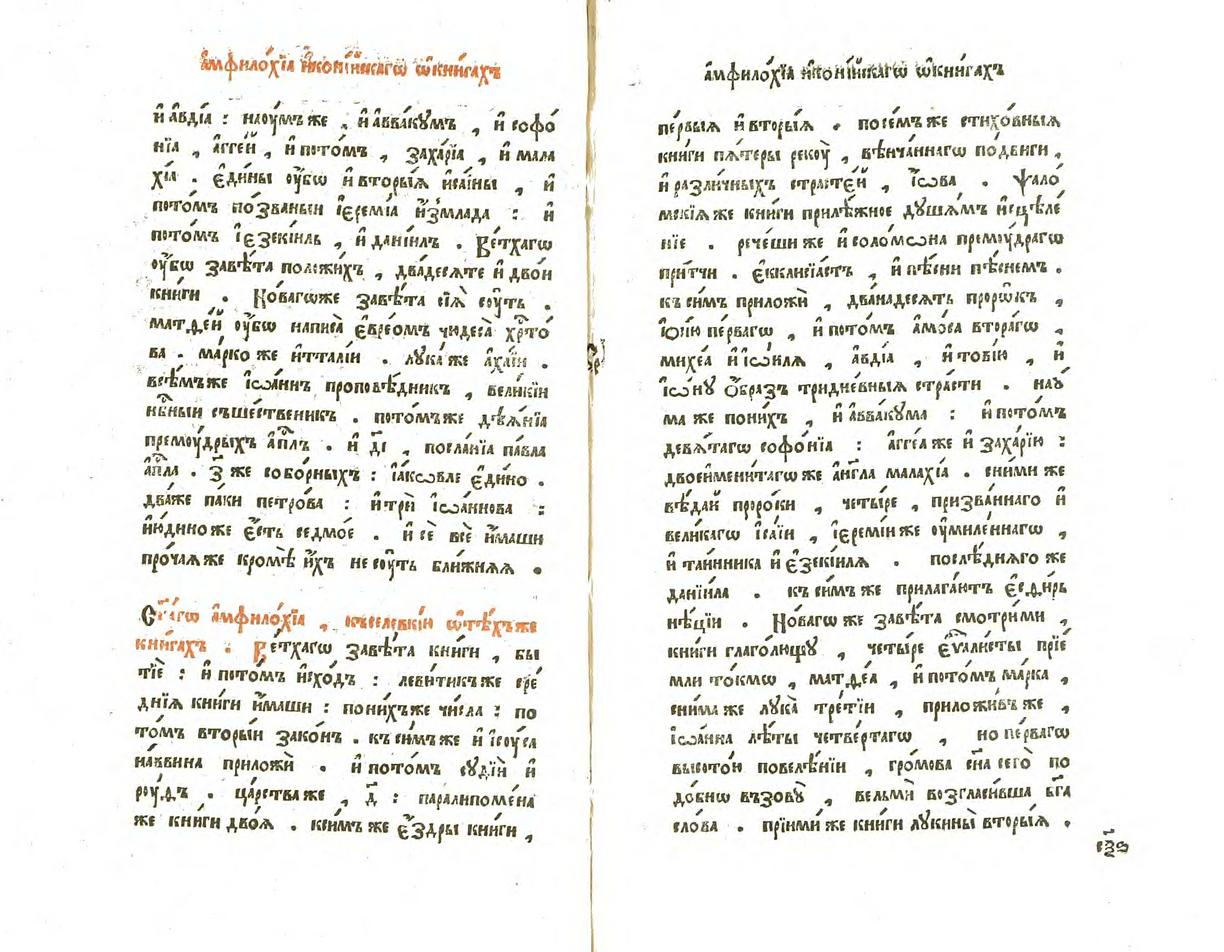 а҆мфило́хїа и҆кони́йскагѡ ѡ҆кни́гахъ
и҆ а҆вді́а : наоу́мъ же , и҆ а҆вваку́мъ , и҆ софо́
нїа , а҆гге́й , и҆ пото́мъ , заха́рїа , и҆ мала
хі́а . є҆ди́ны оу҆́бѡ и҆ вторы́ѧ и҆са́ины , и҆
пото́мъ по́званыи і҆ереми́а и҆з̾мла́да : и҆
пото́мъ і҆езекі́иль , и҆ данїи́лъ . Ве́тхагѡ
оу҆́бѡ заве́та положи́хъ , два́десѧте и҆ дво́и
кни́ги . Но́вагѡже заве́та сїѧ̀ соу́ть .
матѳе́й оу҆́бѡ написа̀ є҆вре́омъ чюдеса̀ хрⷭ҇то́
ва . ма́рко же и҆тта́лїи . лука́ же а҆ха́їи .
все́мъже і҆ѡа́ннъ пропове́дникъ , вели́кїи
нбⷭ҇ныи съше́ственикъ . пото́мъже дѣѧ́нїа
премоу́дрыхъ а҆пⷭ҇лъ . и҆ д҃і , посла́нїа па́вла
а҆пⷭ҇ла . з҃ же собо́рныхъ : і҆а́кѡвле є҆ди́но .
два́же па́ки петро́ва : и҆трѝ і҆ѡа́ннова :
и҆ю́дино же є҆́сть седмо́е . и҆ сѐ всѐ и҆́маши
про́чаѧ же кромѣ̀ и҆́хъ не соу́ть бли́жнѧѧ .
Ст҃а́гѡ а҆мфило́хїа , къселевкі́и ѡ҆тѣ́хъже
кни́гахъ . Ве́тхагѡ заве́та кни́ги , бы
тїѐ : и҆ пото́мъ и҆схо́дъ : леви́тикъ же сре́
днїѧ кни́ги и҆́маши : по ни́хъже чи́сла : по
то́мъ вторы́й зако́нъ . къ си́мъже и҆ і҆соу́са
на́ввина приложѝ . и҆ пото́мъ судїи́ и҆
роу́ѳъ . ца́рства же , д҃ : паралипоме́на
же кни́ги дво́ѧ . ксимъ же є҆́здры кни́ги ,
а҆мфило́хїа и҆кони́йскагѡ ѡ҆кни́гахъ
пе́рвыѧ и҆ вторы́ѧ . посе́мъ же стихо́вныѧ
кни́ги пѧ́теры рекоу̀ , вѣнча́ннагѡ по́двиги ,
и҆ разли́чныхъ страсте́й , і҆́ѡва . Ѱало́
мскїѧ же кни́ги приле́жное душѧ́мъ и҆сцѣле́
нїе . рече́ши же и҆ соломѡ́на премоу́драгѡ
при́тчи . є҆кклисїа́стъ , и҆ пѣ́сни пѣ́снемъ .
къ си́мъ приложѝ , двана́десѧть проро́къ ,
ѻ҆сі́ю пе́рвагѡ , и҆ пото́мъ а҆мо́са втора́гѡ ,
михе́а и҆ і҆ѡи́лѧ , а҆вді́а , и҆ то́вїю , и҆
і҆ѡ́ну ѻ҆́бразъ триднѐвныѧ стра́сти . наоу́
ма же пони́хъ , и҆ а҆вваку́ма : и҆ пото́мъ
девѧ́тагѡ софо́нїа : а҆гге́а же и҆ заха́рїю :
двоеи҆мени́тагѡ же а҆́нгⷭ҇ла мала́хїа . сни́ми же
вѣ́дай проро́ки , четы́ре , призва́ннаго и҆
вели́кагѡ і҆са́їи , і҆еремі́и же оу҆миле́ннагѡ ,
и҆ та́инника и҆ є҆зекі́илѧ . послѣ́днѧго же
данїи́ла . къ си́мъ же прилага́ютъ є҆сѳи́рь
нѣ́цїи . Но́вагѡ же заве́та смотри́ми ,
кни́ги глаго́лющу , четы́ре є҆ѵⷢ҇али́сты прїе́
мли то́кмѡ , матѳе́а , и҆ пото́мъ ма́рка ,
сни́ма же лука̀ тре́тїи , приложи́въ же ,
і҆ѡа́нна лѣ́ты четве́ртагѡ , но пе́рвагѡ
высото́ю повелѣ́нїи , гро́мова сн҃а сего̀ по
до́бнѡ възовꙋ̀ , вельмѝ возгласи́вша бг҃а
сло́ва . прїими́ же кни́ги лукины̀ вторы́ѧ .